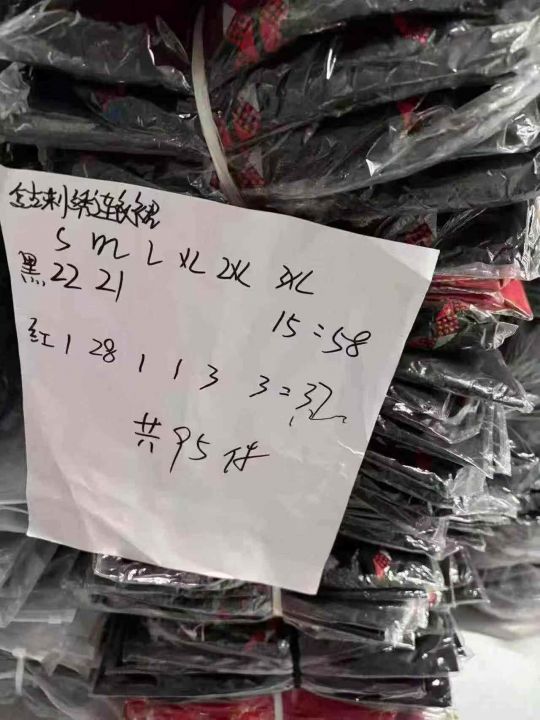 刺绣连衣裙
S M L XL 2XL 3XL
黑 22 21 15=58
红 1 28 1 1 3 3=37
共95件